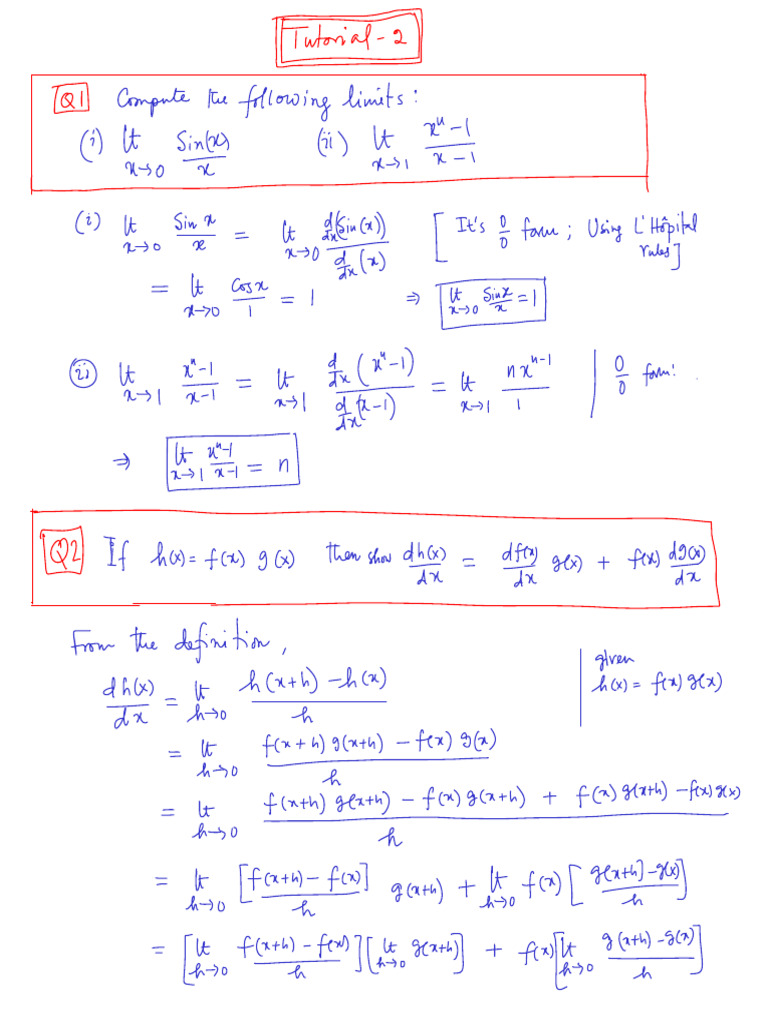 Tutorial-2
Q1 Compute the following limits:
(i) lt x→0 Sin(x)/x (ii) lt x→1 xⁿ-1/x-1
(i) lt x→0 Sin x/x = lt x→0 d/dx(Sin(x))/d/dx(x) [It's 0/0 form; Using L'Hôpital rules]
= lt x→0 Cosx/1 = 1 ⇒ lt x→0 Sinx/x = 1
(ii) lt x→1 xⁿ-1/x-1 = lt x→1 d/dx(xⁿ-1)/d/dx(x-1) = lt x→1 nxⁿ⁻¹/1 | 0/0 form.
⇒ lt x→1 xⁿ-1/x-1 = n
Q2 If h(x) = f(x) g(x) then show dh(x)/dx = df(x)/dx g(x) + f(x) dg(x)/dx
From the definition,
dh(x)/dx = lt h→0 h(x+h) - h(x)/h | given h(x) = f(x) g(x)
= lt h→0 f(x+h) g(x+h) - f(x) g(x)/h
= lt h→0 f(x+h) g(x+h) - f(x) g(x+h) + f(x) g(x+h) - f(x) g(x)/h
= lt h→0 [f(x+h) - f(x)]/h g(x+h) + lt h→0 f(x) [g(x+h) - g(x)/h]
= [lt h→0 f(x+h) - f(x)/h] [lt h→0 g(x+h)] + f(x) [lt h→0 g(x+h) - g(x)/h]